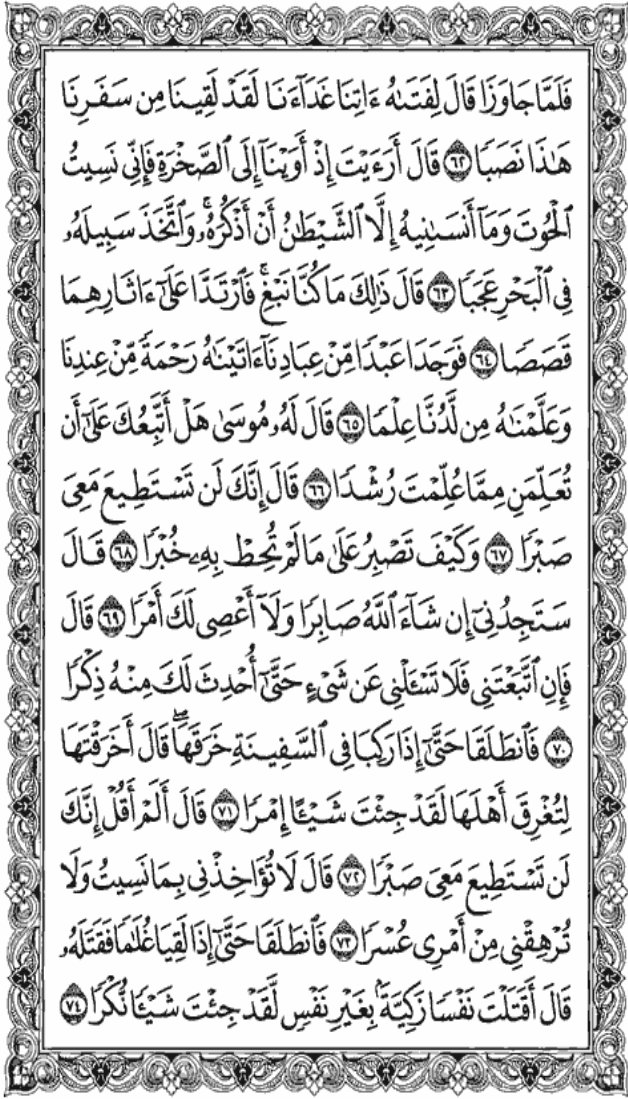 فَلَمَّا جَاوَزَا قَالَ لِفَتَىٰهُ ءَاتِنَا غَدَآءَنَا لَقَدْ لَقِينَا مِن سَفَرِنَا
هَٰذَا نَصَبًا ٦٢ قَالَ أَرَءَيْتَ إِذْ أَوَيْنَآ إِلَى ٱلصَّخْرَةِ فَإِنِّى نَسِيتُ
ٱلْحُوتَ وَمَآ أَنسَىٰنِيهُ إِلَّا ٱلشَّيْطَٰنُ أَنْ أَذْكُرَهُۥ ۚ وَٱتَّخَذَ سَبِيلَهُۥ
فِى ٱلْبَحْرِ عَجَبًا ٦٣ قَالَ ذَٰلِكَ مَا كُنَّا نَبْغِ ۚ فَٱرْتَدَّا عَلَىٰٓ ءَاثَارِهِمَا
قَصَصًا ٦٤ فَوَجَدَا عَبْدًا مِّنْ عِبَادِنَآ ءَاتَيْنَٰهُ رَحْمَةً مِّنْ عِندِنَا
وَعَلَّمْنَٰهُ مِن لَّدُنَّا عِلْمًا ٦٥ قَالَ لَهُۥ مُوسَىٰ هَلْ أَتَّبِعُكَ عَلَىٰٓ أَن
تُعَلِّمَنِ مِمَّا عُلِّمْتَ رُشْدًا ٦٦ قَالَ إِنَّكَ لَن تَسْتَطِيعَ مَعِىَ
صَبْرًا ٦٧ وَكَيْفَ تَصْبِرُ عَلَىٰ مَا لَمْ تُحِطْ بِهِۦ خُبْرًا ٦٨ قَالَ
سَتَجِدُنِىٓ إِن شَآءَ ٱللَّهُ صَابِرًا وَلَآ أَعْصِى لَكَ أَمْرًا ٦٩ قَالَ
فَإِنِ ٱتَّبَعْتَنِى فَلَا تَسْـَٔلْنِى عَن شَىْءٍ حَتَّىٰٓ أُحْدِثَ لَكَ مِنْهُ ذِكْرًا
٧٠ فَٱنطَلَقَا حَتَّىٰٓ إِذَا رَكِبَا فِى ٱلسَّفِينَةِ خَرَقَهَا ۖ قَالَ أَخَرَقْتَهَا
لِتُغْرِقَ أَهْلَهَا لَقَدْ جِئْتَ شَيْـًٔا إِمْرًا ٧١ قَالَ أَلَمْ أَقُلْ إِنَّكَ
لَن تَسْتَطِيعَ مَعِىَ صَبْرًا ٧٢ قَالَ لَا تُؤَاخِذْنِى بِمَا نَسِيتُ وَلَا
تُرْهِقْنِى مِنْ أَمْرِى عُسْرًا ٧٣ فَٱنطَلَقَا حَتَّىٰٓ إِذَا لَقِيَا غُلَٰمًا فَقَتَلَهُۥ
قَالَ أَقَتَلْتَ نَفْسًا زَكِيَّةًۢ بِغَيْرِ نَفْسٍ لَّقَدْ جِئْتَ شَيْـًٔا نُّكْرًا ٧٤